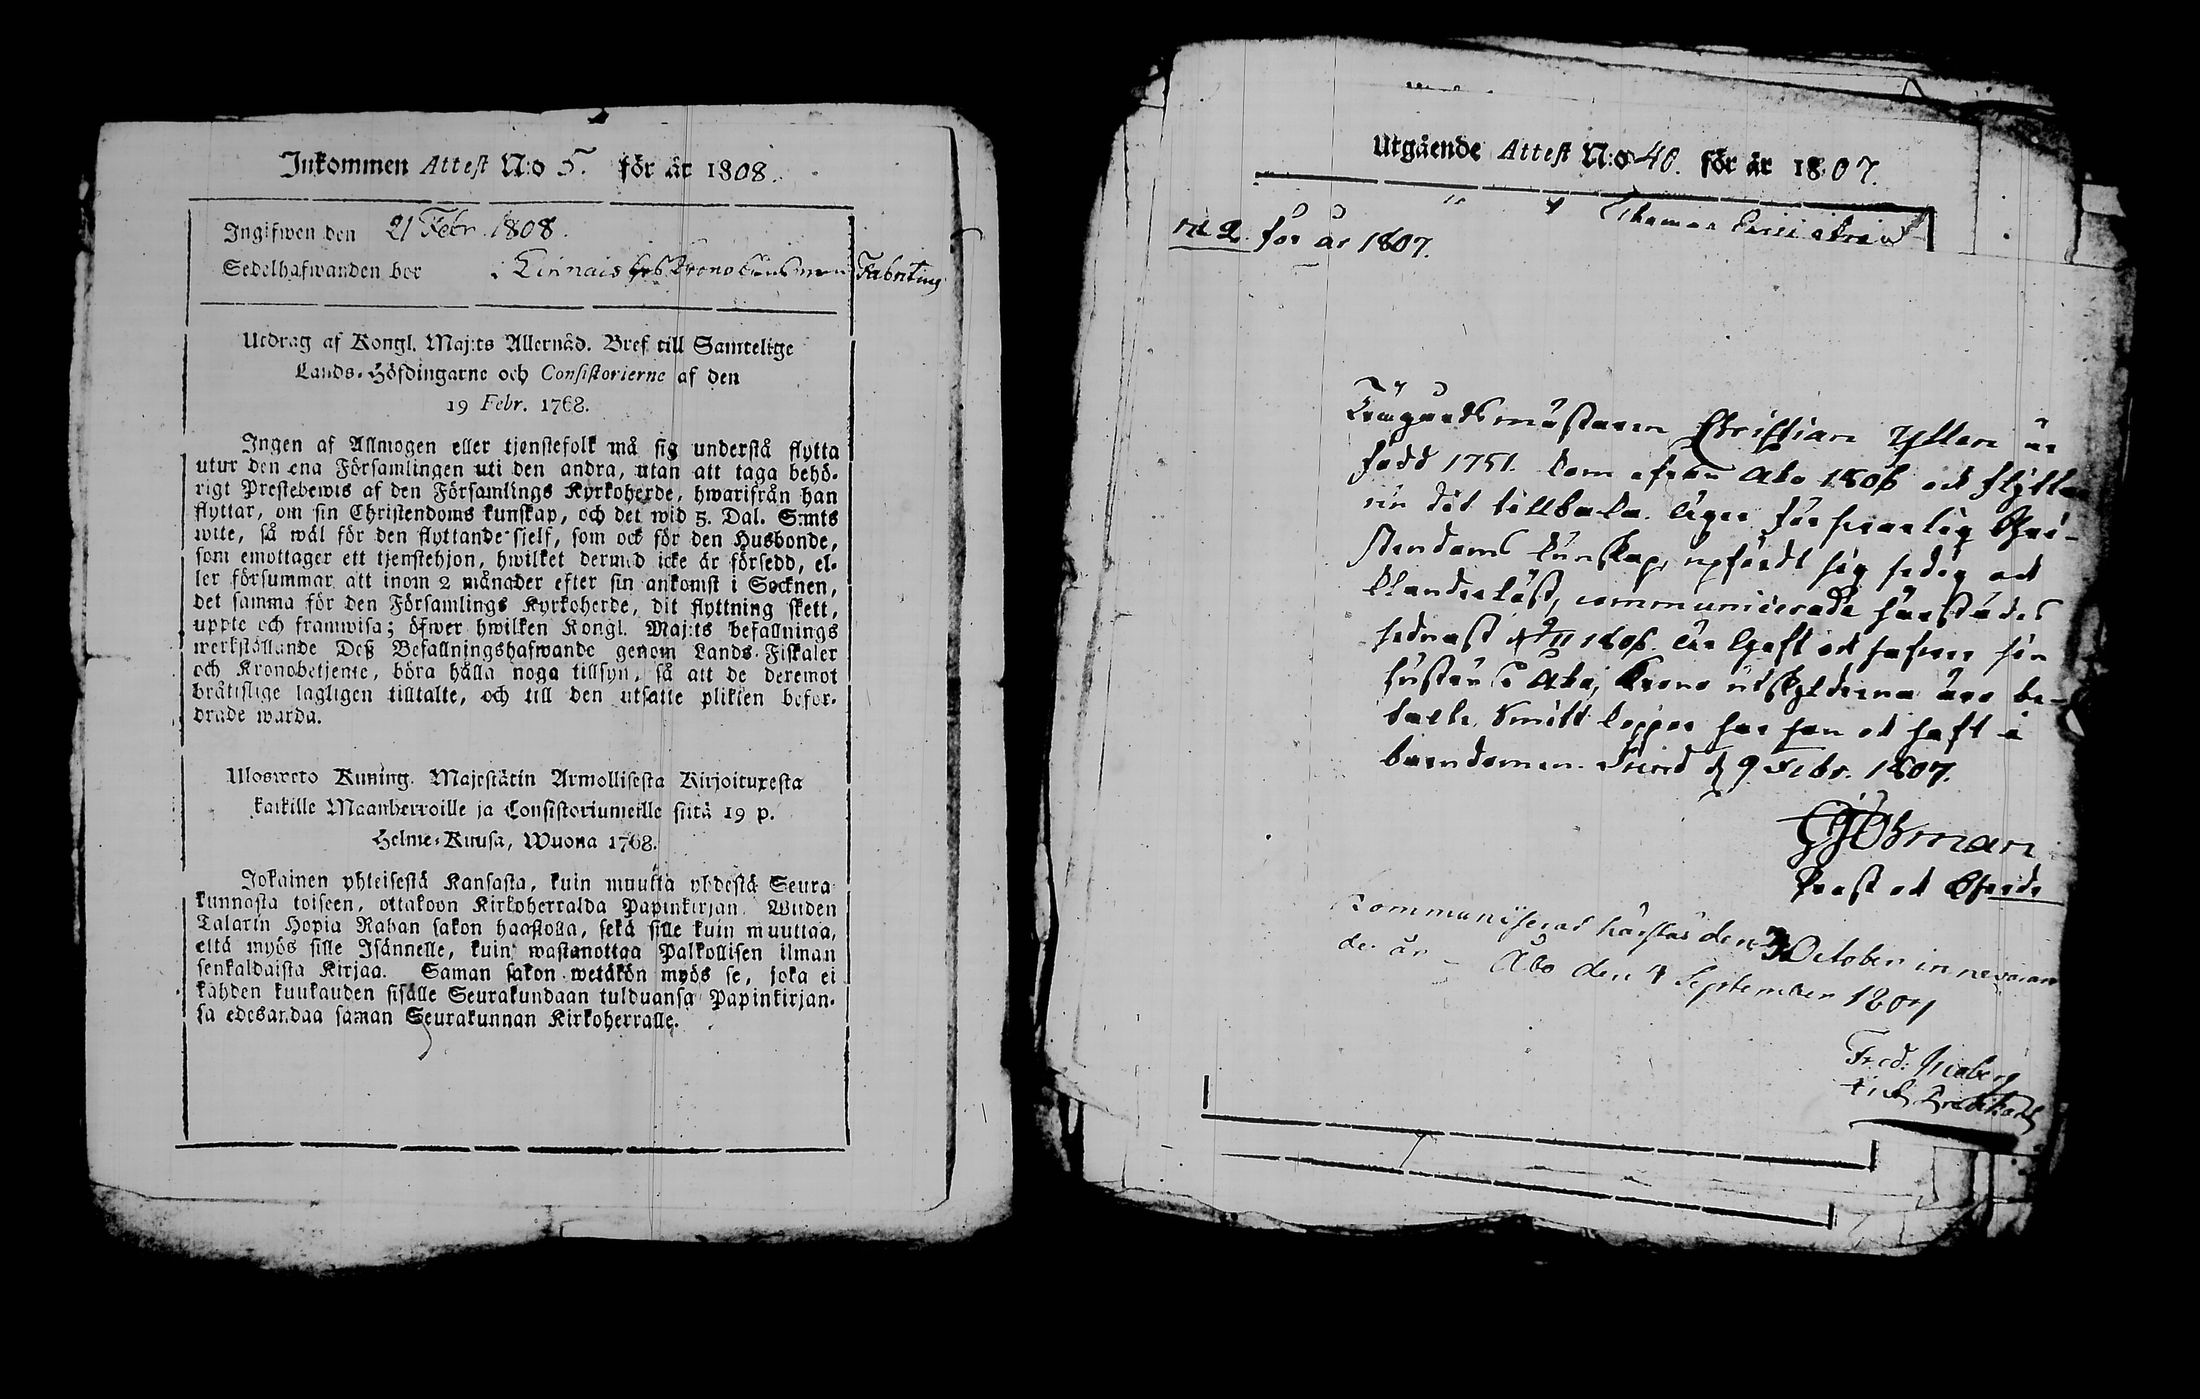 Inkommen Attest N:o 5. för år 1808.
Ingifwen den 21 Febr. 1808.
Sedelhafwanden bor i Kirnais hos Krono Länsman Fabritius
Utdrag af Kongl. Maj:ts Allernåd. Bref till Samtelige
Lands-Höfdingarne och Consistorierne af den
19 Febr. 1768.
Ingen af Allmogen eller tjenstefolk må sig understå flytta
utur den ena Församlingen uti den andra, utan att taga behö-
rigt Prestebewis af den Församlings Kyrkoherde, hwarifrån han
flyttar, om sin Christendoms kunskap, och det wid 5. Dal. S:mts
wite, så wäl för den flyttande sjelf, som ock för den Husbonde,
som emottager ett tjenstehjon, hwilket dermed icke är försedd, el-
ler försummar att inom 2 månader efter sin ankomst i Socknen,
det samma för den Församlings Kyrkoherde, dit flyttning skett,
uppte och framwisa; öfwer hwilken Kongl. Maj:ts befallnings
werkställande Deß Befallningshafwande genom Lands-Fiskaler
och Kronobetjente, böra hålla noga tillsyn, så att de deremot
bråtislige lagligen tilltalte, och till den utsatte plikten befor-
drade warda.
Ulosweto Kuning. Majestätin Armollisesta Kirjoituxesta
kaikille Maanherroille ja Consistoriumeille siitä 19 p.
Helme-Kuusa, Wuona 1768.
Jokainen yhteisestä Kansasta, kuin muutta yhdestä Seura-
kunnasta toiseen, ottakoon Kirkoherralda Papinkirjan. Wiiden
Talarin Hopia Rahan sakon haastolla, sekä sille kuin muuttaa,
että myös sille Isännelle, kuin wastanottaa Palkollisen ilman
senkaldaista Kirjaa. Saman sakon wetäkön myös se, joka ei
kahden kuukauden sisälle Seurakundaan tulduansa Papinkirjan-
sa edesandaa saman Seurakunnan Kirkoherralle.
Utgående Attest N:o 40. för år 1807.
Thomas
N:o 2 för år 1807.
Trägårdsmästaren Christian Ytter är
född 1751. kom ifrån Abo 1806 och flyttar
nu dit tillbaka. Äger försvarlig Chri-
stendoms kunskap, upfördt sig sedig och
klanderlöst, communicerade härstädes
sednast d 2/11 1806. Är Gift och hafver sin
hustru i Abo, Krono utskylderna äro be-
talte, Smitt koppor har han ock haft i
barndomen. d 9 Febr. 1807.
Öhman
Prost och Kyrkoh.
Kommuniserat härstäs den 3 October innevaran
de år – Åbo den 4 September 1807
Fred: